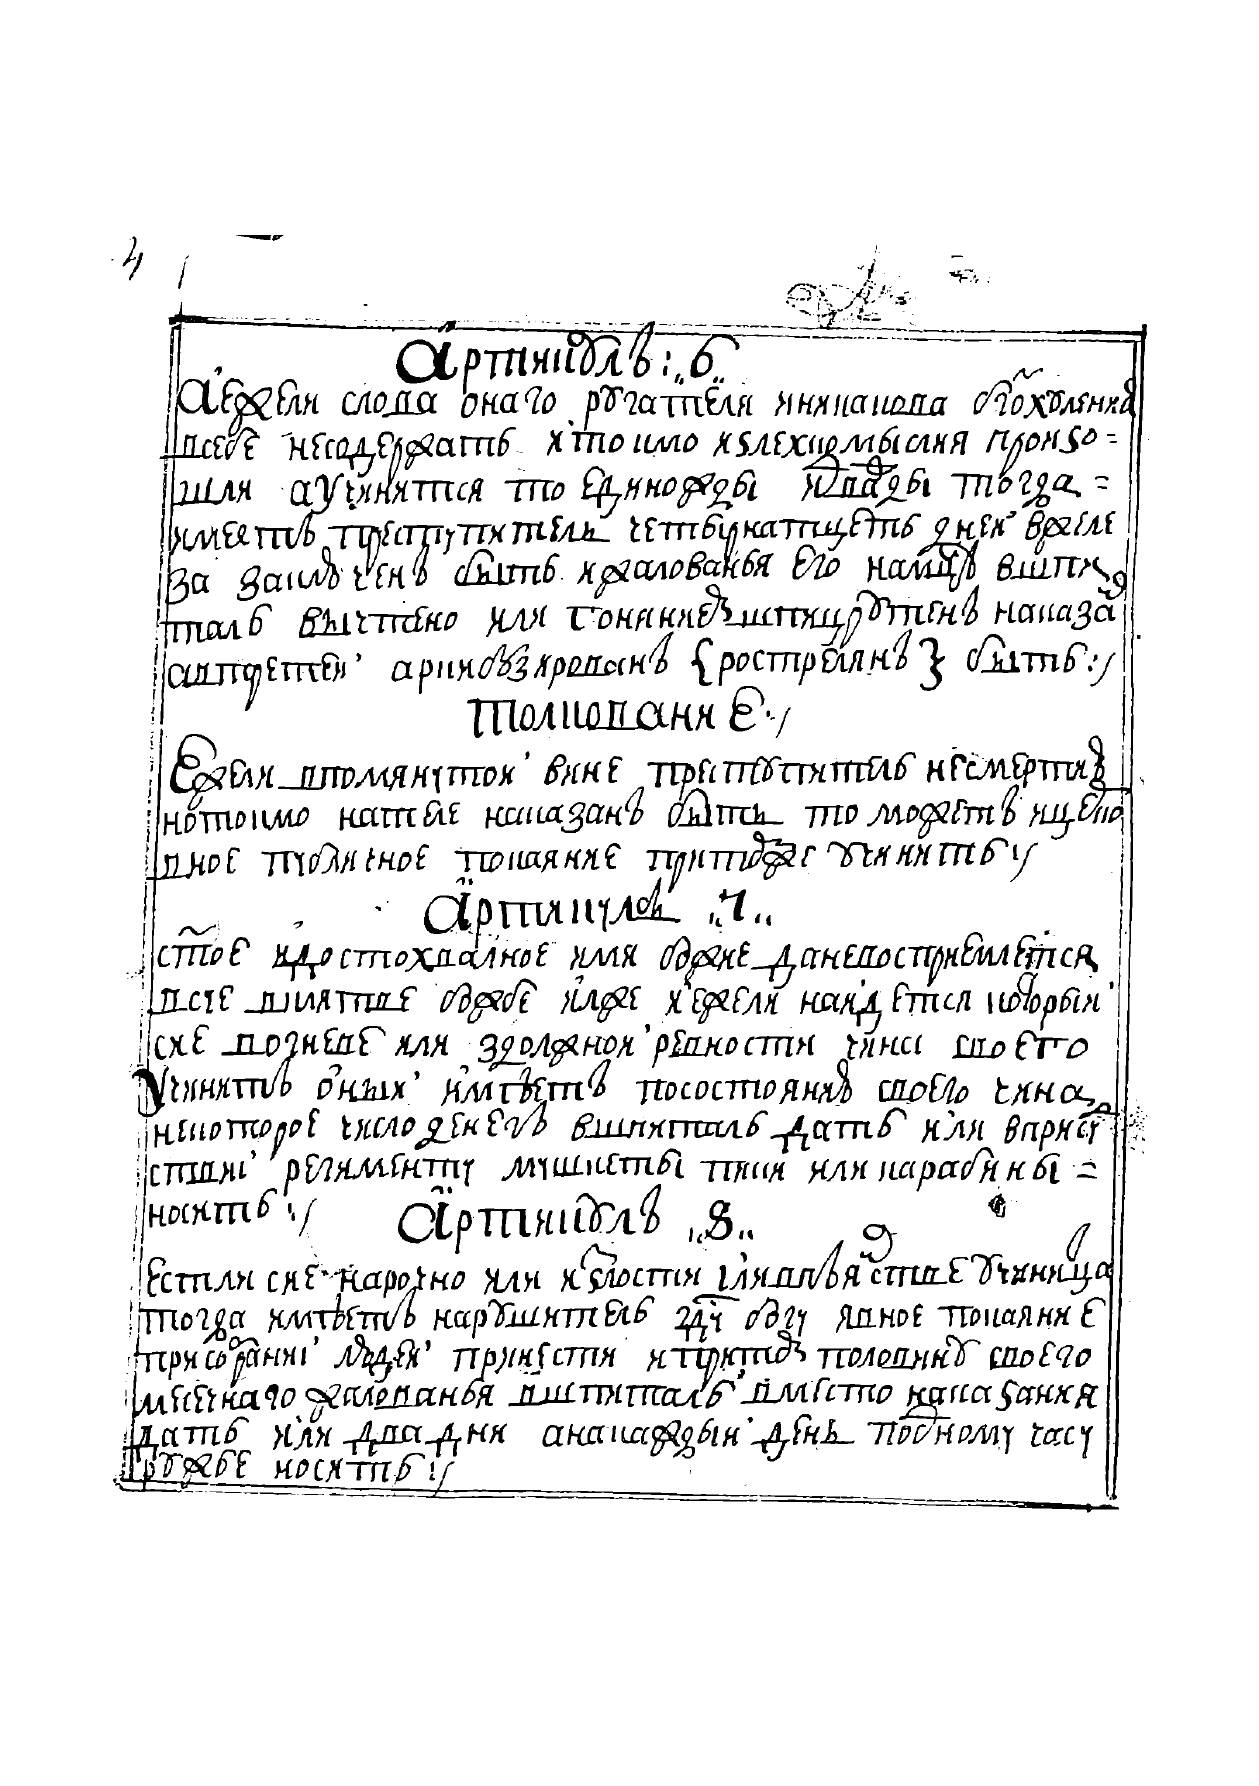 4
Артикулъ: „6„
Аежели слова онаго ругателя никакова бгохуления
всебѣ несодержатъ итокмо излехкомыслия произо=
шли аучинится то единожды идважды тогда=
имеетъ преступитель четырнатцеть днеи вжеле
за заключенъ быть ижалованья его намцъ вшпи
таль вычтено или гонянием шпицрутенъ наказа
автретеи аркибузированъ {ростреляиъ} быть:/
Толкование·/
Ежели впомянутои вине преступитель несмертию
нотокмо нателе наказанъ быть томожетъ ицерко
вное публичное покаяние притомже учинить:/
Артикулъ „7„
стое идостохвалное имя бжие даневосприемлется
всуе вклятве божбе илже иежели наидется которыи
сие вогневе или здолжнои ревности чина своего
учинитъ оныи имѣетъ посостоянию своего чина
некоторое число денегъ вшпиталь дать или впрису
ствии регименту мушкеты пики или карабины=
носить:/
Артикулъ „8„
естли сие нарочно или изълости иливпьянстве учиница
тогда имѣетъ нарушитель здѣ бгу явное покаяние
присобрании людеи принести ипритом половину своего
месечнаго жалованья вшпиталь вместо наказания
дать или два дни анакаждыи день поодному часу
ружье носить:/